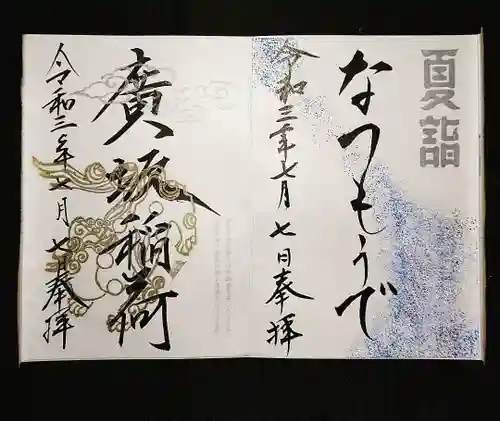 夏詣
なつもうで
令和三年七月七日奉拝
廣頭稲荷
令和三年七月七日奉拝